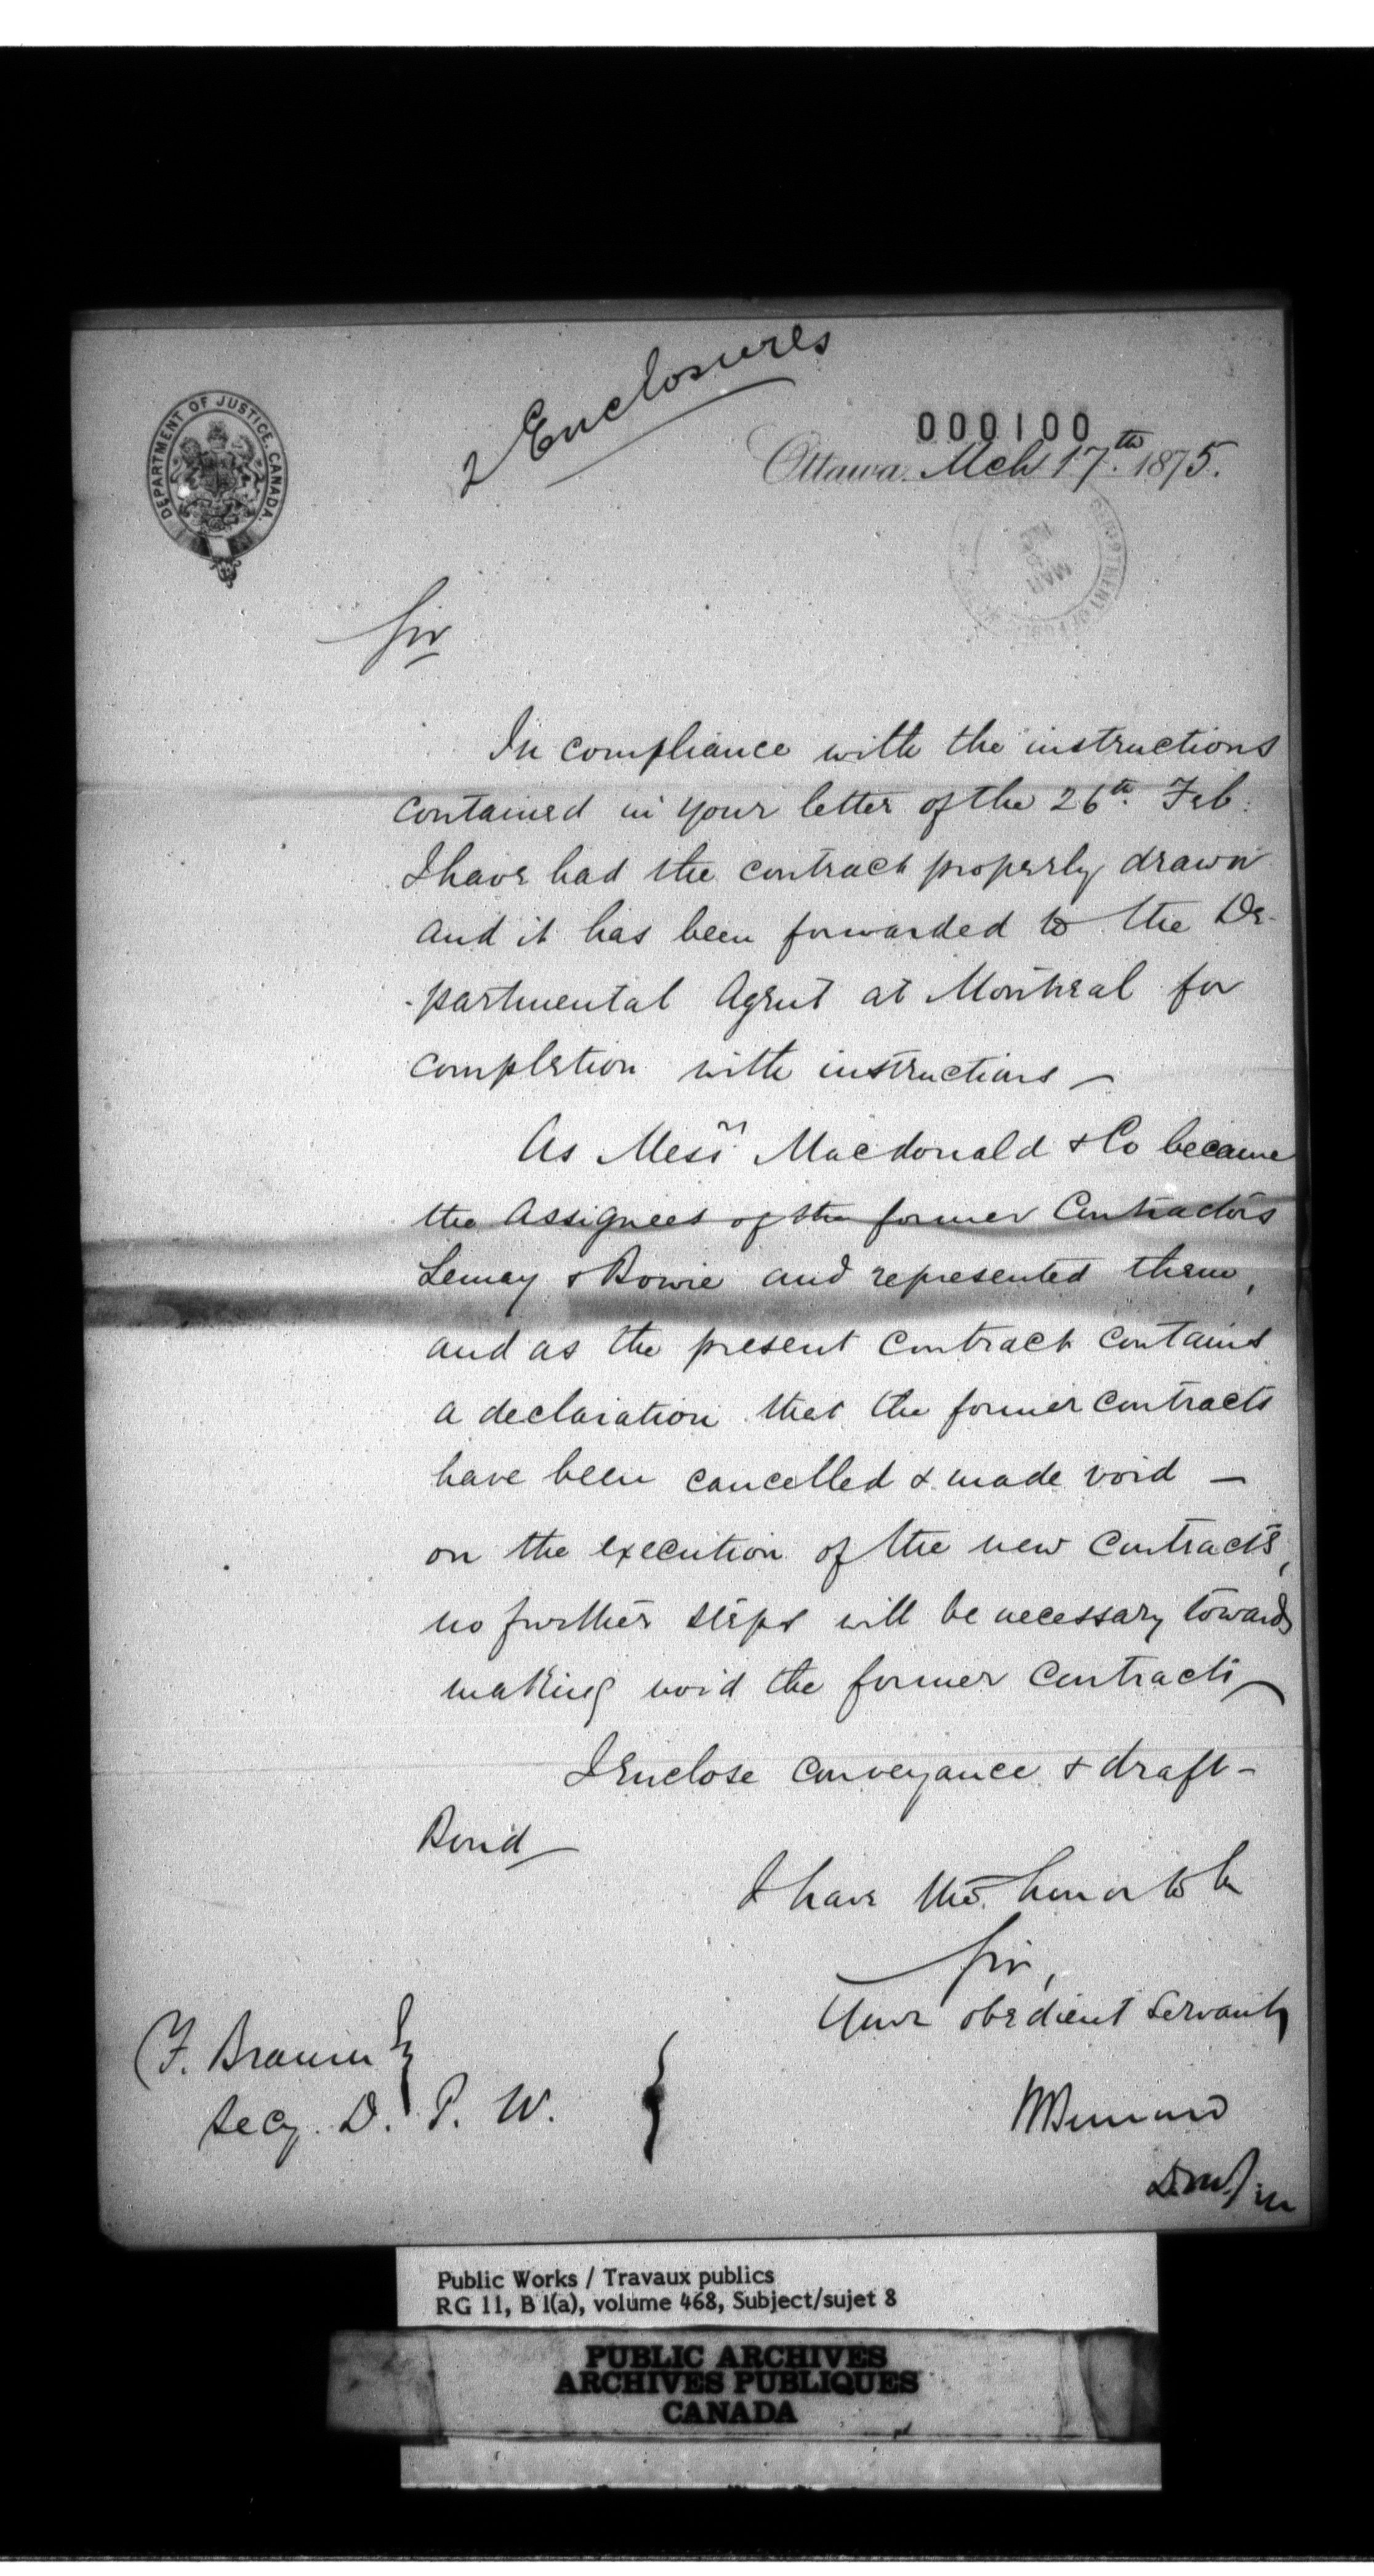 2 Enclosures
DEPARTMENT OF JUSTICE. CANADA.
000100
Ottawa. Mch 17th. 1875.
MAR
Sir
In compliance with the instructions
contained in your letter of the 26th. Feb.
I have had the contract properly drawn
and it has been forwarded to the De-
-partmental Agent at Montreal for
completion with instructions —
As Messrs Macdonald & Co became
the Assignees of the former Contractors
Lemay & Bowie and represented them,
and as the present contract contains
a declaration that the former contracts
have been cancelled & made void —
on the execution of the new contracts,
no further steps will be necessary towards
making void the former contracts —
I enclose conveyance & draft -
Bond —
I have the honor to be
Sir,
Your obedient servant
F. Braun Esq
Secy. D. P. W.
HBernard
D.M.J
Public Works / Travaux publics
RG 11, B 1(a), volume 468, Subject/sujet 8
PUBLIC ARCHIVES
ARCHIVES PUBLIQUES
CANADA